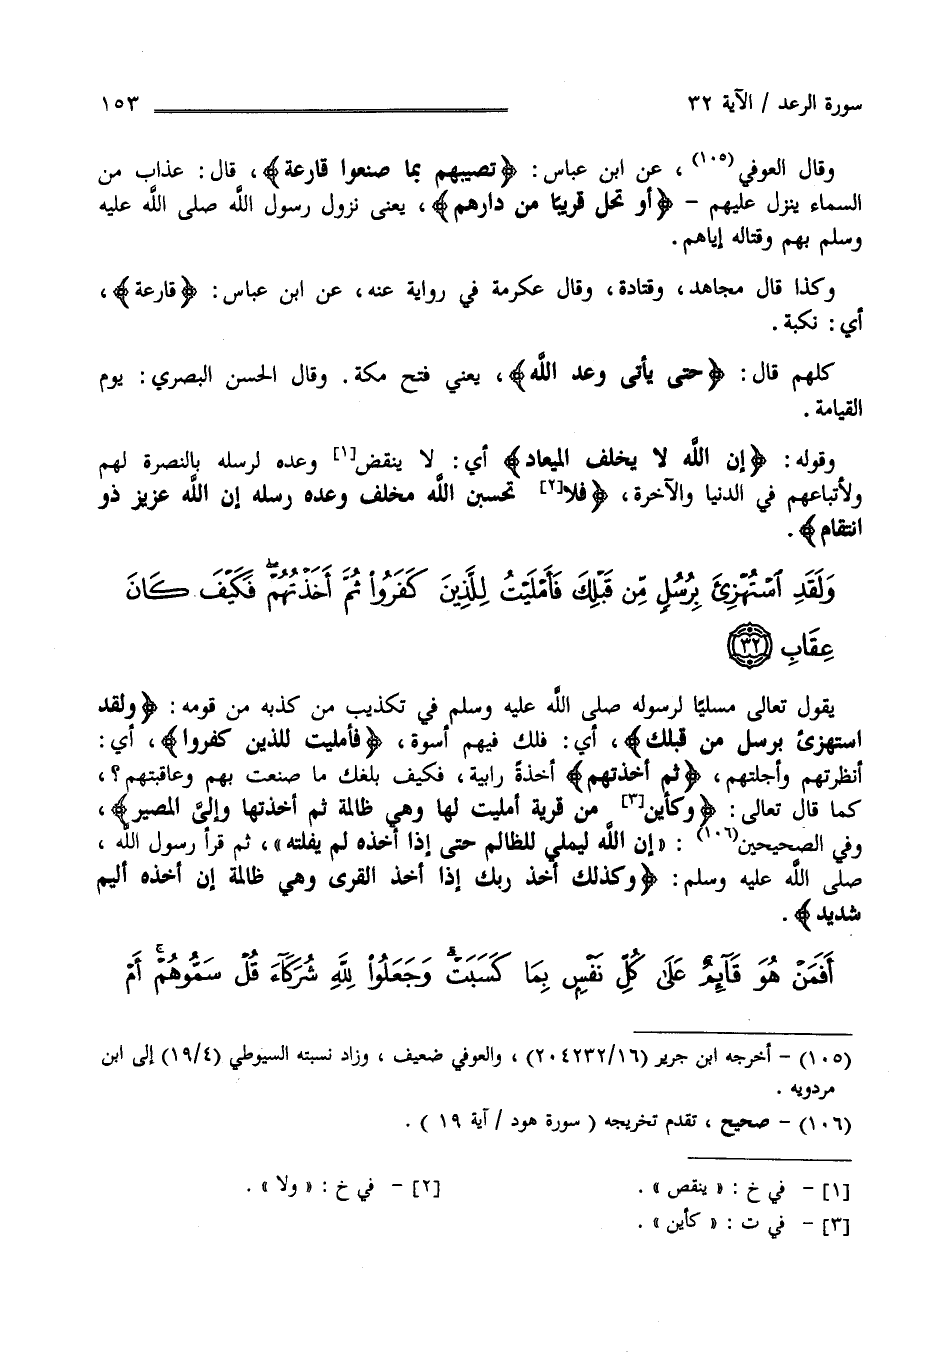 سورة الرعد / الآية ٣٢ ١٥٣
وقال العوفي(١٠٥) ، عن ابن عباس : ﴿تصيبهم بما صنعوا قارعة﴾ ، قال : عذاب من
السماء ينزل عليهم - ﴿أو تحل قريبًا من دارهم﴾ ، يعنى نزول رسول اللَّه صلى اللَّه عليه
وسلم بهم وقتاله إياهم .
وكذا قال مجاهد ، وقتادة ، وقال عكرمة في رواية عنه ، عن ابن عباس : ﴿قارعة﴾ ،
أي : نكبة .
كلهم قال : ﴿حتى يأتى وعد اللَّه﴾ ، يعني فتح مكة . وقال الحسن البصري : يوم
القيامة .
وقوله : ﴿إن اللَّه لا يخلف الميعاد﴾ أي : لا ينقض[١] وعده لرسله بالنصرة لهم
ولأتباعهم في الدنيا والآخرة ، ﴿فلا[٢] تحسبن اللَّه مخلف وعده رسله إن اللَّه عزيز ذو
انتقام﴾ .
وَلَقَدِ ٱسْتُهْزِئَ بِرُسُلٍ مِّن قَبْلِكَ فَأَمْلَيْتُ لِلَّذِينَ كَفَرُوا۟ ثُمَّ أَخَذْتُهُمْ ۖ فَكَيْفَ كَانَ
عِقَابِ ﴿٣٢﴾
يقول تعالى مسليًا لرسوله صلى اللَّه عليه وسلم في تكذيب من كذبه من قومه : ﴿ولقد
استهزئ برسل من قبلك﴾ ، أي : فلك فيهم أسوة ، ﴿فأمليت للذين كفروا﴾ ، أي :
أنظرتهم وأجلتهم ، ﴿ثم أخذتهم﴾ أخذةً رابية ، فكيف بلغك ما صنعت بهم وعاقبتهم ؟ ،
كما قال تعالى : ﴿وكأين[٣] من قرية أمليت لها وهي ظالمة ثم أخذتها وإليَّ المصير﴾ ،
وفي الصحيحين(١٠٦) : «إن اللَّه ليملي للظالم حتى إذا أخذه لم يفلته» ، ثم قرأ رسول اللَّه ،
صلى اللَّه عليه وسلم : ﴿وكذلك أخذ ربك إذا أخذ القرى وهي ظالمة إن أخذه أليم
شديد﴾ .
أَفَمَنْ هُوَ قَآئِمٌ عَلَىٰ كُلِّ نَفْسٍ بِمَا كَسَبَتْ ۗ وَجَعَلُوا۟ لِلَّهِ شُرَكَآءَ قُلْ سَمُّوهُمْ ۚ أَمْ
(١٠٥) - أخرجه ابن جرير (٢٠٤٢٣٢/١٦) ، والعوفي ضعيف ، وزاد نسبته السيوطي (١٩/٤) إلى ابن
مردويه .
(١٠٦) - صحيح ، تقدم تخريجه ( سورة هود / آية ١٩ ) .
[١] - في خ : « ينقص » . [٢] - في خ : « ولا » .
[٣] - في ت : « كأين » .